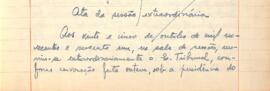 Ata da sessão extraordinária
Aos vinte e cinco de outubro de mil no-
vecentos e sessenta um, na sala de sessões, reu-
niu-se extraordinariamente o Eg. Tribunal, con-
forme convocação feita ontem, sob a presidência do